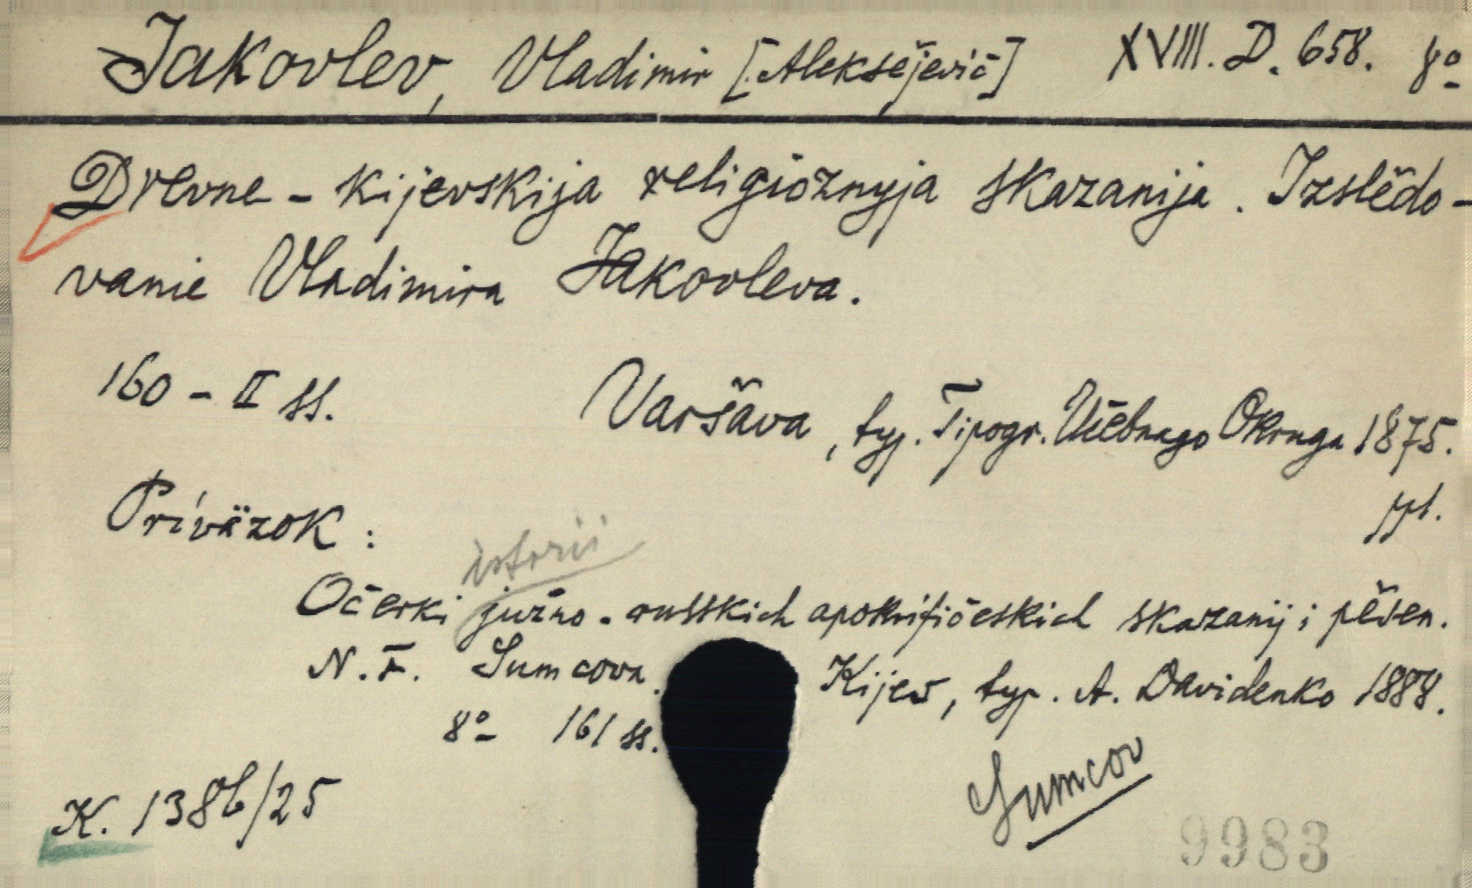 Jakovlev, Vladimir [Aleksějevič] XVIII. D. 658. 8º
Drevne - kijevskija religioznyja skazanija. Izslědo-
vanie Vladimira Jakovleva.
160 - II ss. Varšava, typ. Tipogr. Učebnago Okruga 1875.
ppl.
Priväzok:
istorii
Očerki južno-russkich apokrifičeskich skazanij i pěsen.
N. F. Sumcova. Kijev, typ. A. Davidenko 1888.
8º 161 ss.
Sumcov
K. 1386/25
9983